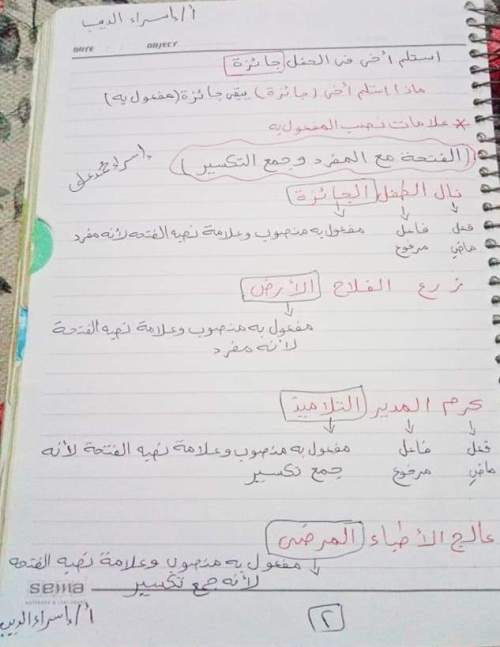 أ/ إسراء الديب
DATE OBJECT
استلم أخى فى الحفل جائزة
ماذا استلم أخى (جائزة) يبقى جائزة (مفعول به)
* علامات نصب المفعول به
(الفتحة مع المفرد وجمع التكسير)
نال الطفل الجائزة
فعل فاعل مفعول به منصوب وعلامة نصبه الفتحة لأنه مفرد
ماضٍ مرفوع
زرع الفلاح الأرض
مفعول به منصوب وعلامة نصبه الفتحة
لأنه مفرد
كرم المدير التلاميذ
فعل فاعل مفعول به منصوب وعلامة نصبه الفتحة لأنه
ماضٍ مرفوع جمع تكسير
عالج الأطباء المرضى
مفعول به منصوب وعلامة نصبه الفتحة
لأنه جمع تكسير
sema
٢
أ/ إسراء الديب